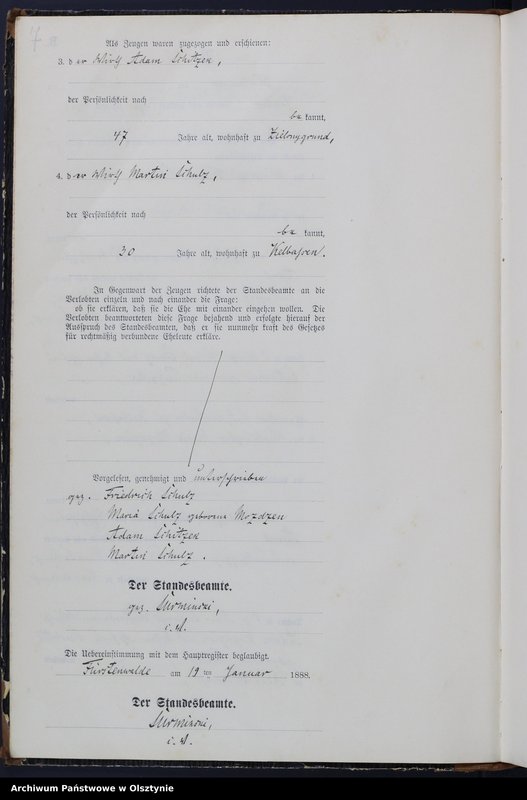 Als Zeugen waren zugezogen und erschienen:
3. der Wirth Adam Schitzek,
der Persönlichkeit nach
be kannt,
47 Jahre alt, wohnhaft zu
4. der Wirth Martin Schulz,
der Persönlichkeit nach
be kannt,
30 Jahre alt, wohnhaft zu Kelbassen.
In Gegenwart der Zeugen richtete der Standesbeamte an die
Verlobten einzeln und nach einander die Frage:
ob sie erklären, daß sie die Ehe mit einander eingehen wollen. Die
Verlobten beantworteten diese Frage bejahend und erfolgte hierauf der
Ausspruch des Standesbeamten, daß er sie nunmehr kraft des Gesetzes
für rechtmäßig verbundene Eheleute erkläre.
Vorgelesen, genehmigt und unterschrieben
gez. Friedrich Schulz
Maria Schulz geborene Mozdzen
Adam Schitzek
Martin Schulz.
Der Standesbeamte.
gez. Surminski,
i. V.
Die Uebereinstimmung mit dem Hauptregister beglaubigt.
Fürstenwalde am 19ten Januar 1888.
Der Standesbeamte.
Surminski,
i. V.
Archiwum Państwowe w Olsztynie